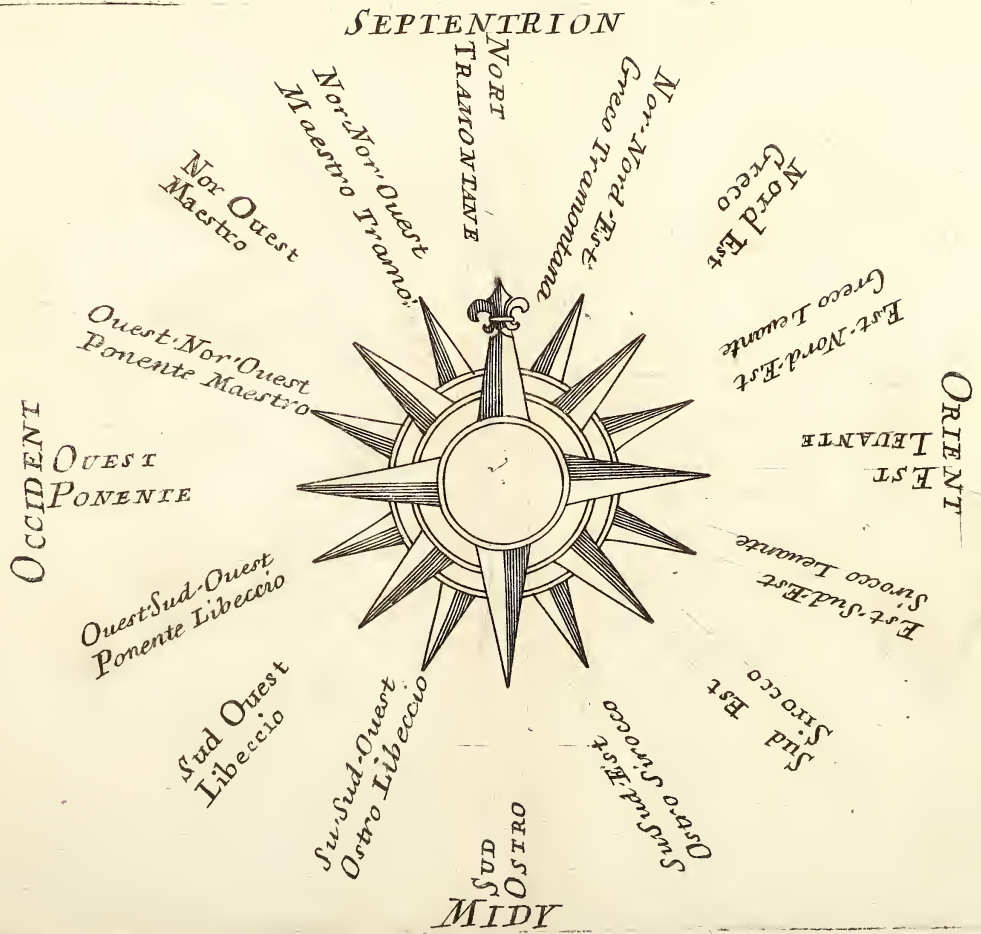 SEPTENTRION
NORT
TRAMONTANE
Nor-Nord-Est
Greco Tramontana
Nord Est
Greco
Est-Nord-Est
Greco Leuante
ORIENT
EST
LEUANTE
Est-Sud-Est
Sirocco Leuante
Sud Est
Sirocco
Su Sud-Est
Ostro Sirocco
SUD
OSTRO
MIDY
Su-Sud-Ouest
Ostro Libeccio
Sud Ouest
Libeccio
Ouest-Sud-Ouest
Ponente Libeccio
OCCIDENT
OUEST
PONENTE
Ouest-Nor-Ouest
Ponente Maestro
Nor Ouest
Maestro
Nor-Nor-Ouest
Maestro Tramo: